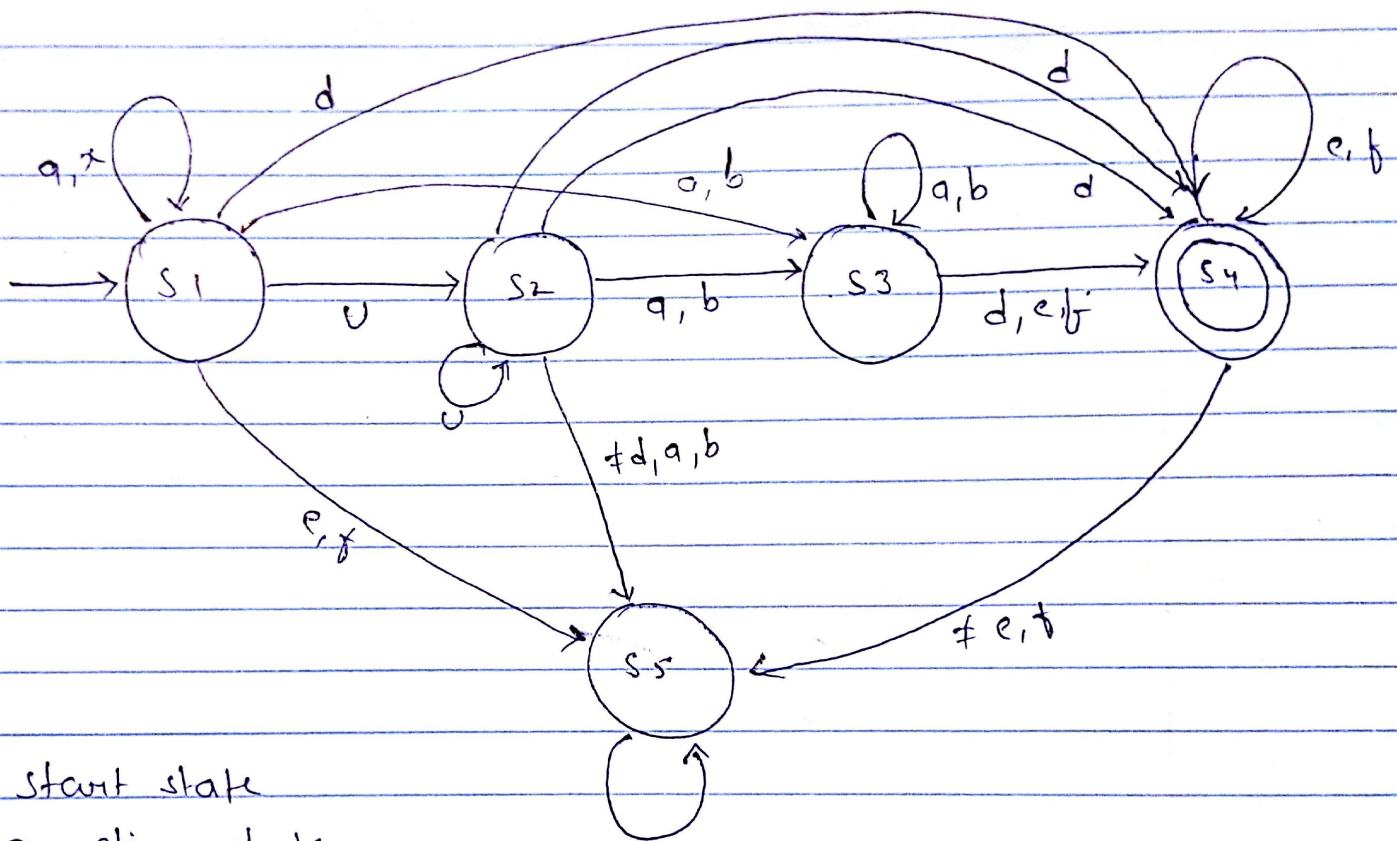 d
d
a, x
e, f
a, b
a, b
d
S1
S2
S3
S4
U
a, b
d, e, f
U
≠d, a, b
e, f
≠ e, f
S5
start state